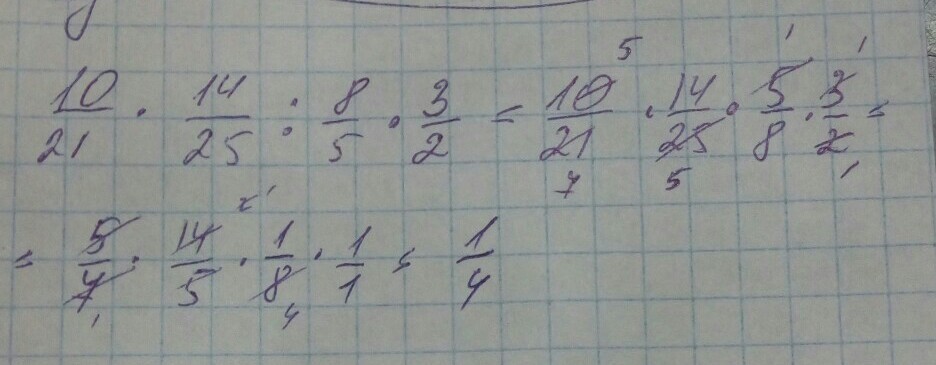 10/21 · 14/25 : 8/5 · 3/2 = 10/21 · 14/25 · 5/8 · 3/2 =
= 5/7 · 14/5 · 1/8 · 1/1 = 1/4